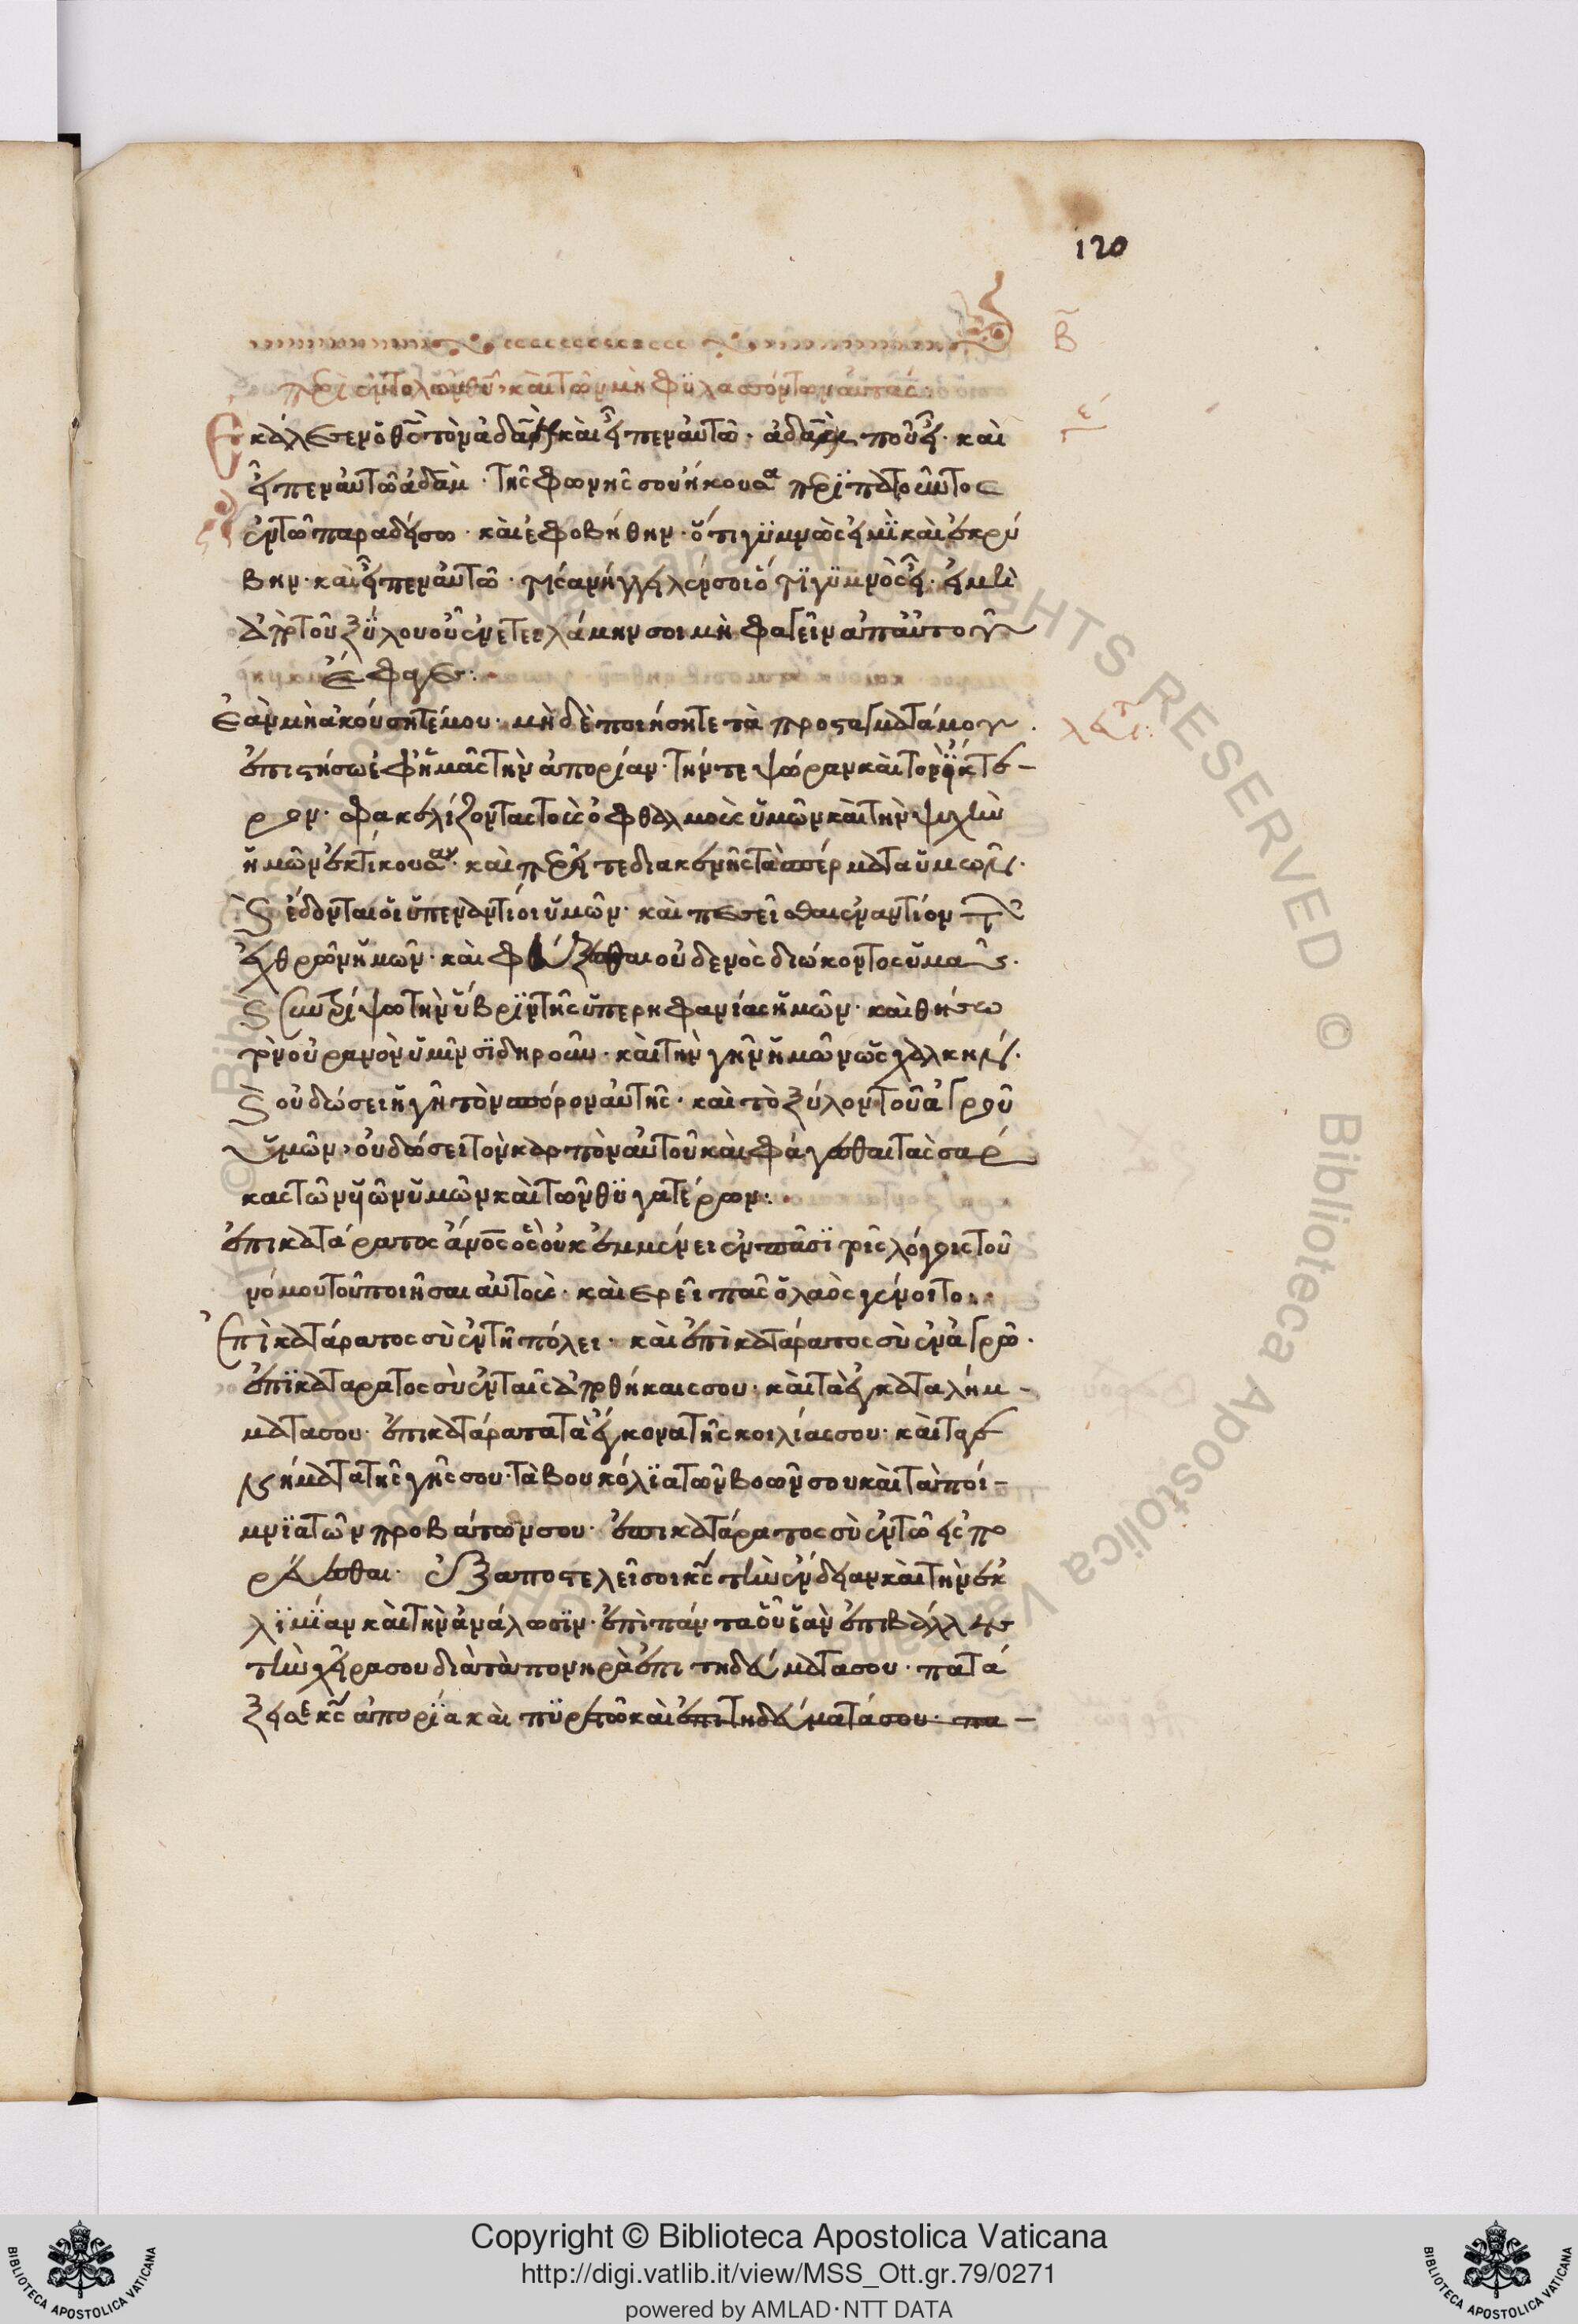 120
Β
περὶ ἐντολῶν θυ· καὶ τῶν μὴ φϋλασσόντων αὐτάς:
ε
Ἐκάλεσεν ὁ θς τὸν ἀδὰμ καὶ εἶπεν αὐτῶ· ἀδὰμ ποῦ εἶ· καὶ
εἶπεν αὐτῶ ἀδὰμ· τῆς φωνῆς σου ἤκουσα περϊπατοῦντος
ἐν τῶ παραδείσω· καὶ ἐφοβήθην· ὅτι γϋμνός εἰμϊ καὶ ἐκρύ
βην· καὶ εἶπεν αὐτῶ· τίς ἀνήγγειλέν σοι ὅτϊ γϋμνὸς εἶ· εἰ μὴ
ἀπὸ τοῦ ξϋλου οὗ ἐνετειλάμην σοι μὴ φαγεῖν ἀπ αὐτοῦ
ἔφαγες:
Ἐὰν μὴ ἀκούσητέ μου· μὴ δὲ ποιήσητε τὰ προσταγματά μου·
ἐπιστήσω ἐφ ἡμᾶς τὴν ἀπορίαν· τήν τε ψώραν καὶ τὸν ἴκτε-
ρον· σφακελίζοντας τοὺς ὀφθαλμοὺς ὑμῶν καὶ τὴν ψυχὴν
ἡμῶν ἐκτίκουσαν· καὶ σπερεῖτε διακενῆς τὰ σπέρματα ὑμῶν·
καὶ ἔδονται οἱ ὑπεναντίοι ὑμῶν· καὶ πεσεῖσθαι ἐναντίον τῶν
ἐχθρῶν ἡμῶν· καὶ φεύξεσθαι οὐδενὸς διώκοντος ὑμᾶς·
καὶ συντρίψω τὴν ὕβρϊν τῆς ὑπερηφανίας ἡμῶν· καὶ θήσω
τὸν οὐρανὸν ὑμῖν σϊδηροῦν· καὶ τὴν γῆν ἡμῶν ὡς χαλκήν·
καὶ οὐ δώσει ἡ γῆ τὸν σπόρον αὐτῆς· καὶ τὸ ξύλον τοῦ ἀγροῦ
ὑμῶν· οὐ δώσει τὸν καρπὸν αὐτοῦ καὶ φάγεσθαι τὰς σάρ
κας τῶν ϋἱῶν ὑμῶν καὶ τῶν θϋγατέρων:
ἐπικατάρατος ἄνος ὃς οὐκ ἐμμένει ἐν πᾶσϊ τοῖς λόγοις τοῦ
νόμου τοῦ ποιῆσαι αὐτούς· καὶ ἐρεῖ πᾶς ὁ λαὸς γένοιτο:
Ἐπικατάρατος σὺ ἐν τῆ πόλει· καὶ ἐπὶκατάρατος σὺ ἐν ἀγρῶ·
ἐπϊκαταρατος σὺ ἐν ταῖς ἀποθήκαις σου· καὶ τὰ ἐγκαταλήμ-
ματα σου· ἐπικατάρατα τὰ ἔγκονα τῆς κοιλίας σου· καὶ τα γε
νήματα τῆς γῆς σου· τὰ βουκόλϊα τῶν βοῶν σου καὶ τὰ ποί-
μνϊα τῶν προβάτων σου· ἐπικατάρατος σὺ ἐν τῶ εἰσπο
ρεύεσθαι· ἐξαποστελεῖ σοι κς τὴν ἔνδειαν καὶ τὴν ἐκ
λϊμίαν καὶ τὴν ἀνάλωσϊν· ἐπὶ πάντα οὗ ἐὰν ἐπιβάλλης
τὴν χεῖρα σου διὰ τὰ πονηρὰ ἐπιτηδεύματα σου· πατά
ξει σε κς ἀπορϊα καὶ πϋρετῶ καὶ ἐπιτηδευματά σου· πα-
Copyright © Biblioteca Apostolica Vaticana
http://digi.vatlib.it/view/MSS_Ott.gr.79/0271
powered by AMLAD·NTT DATA